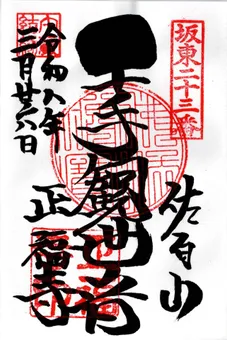 坂東二十三番
佐白山
千手観世音
正福寺
令和八年
三月廿六日